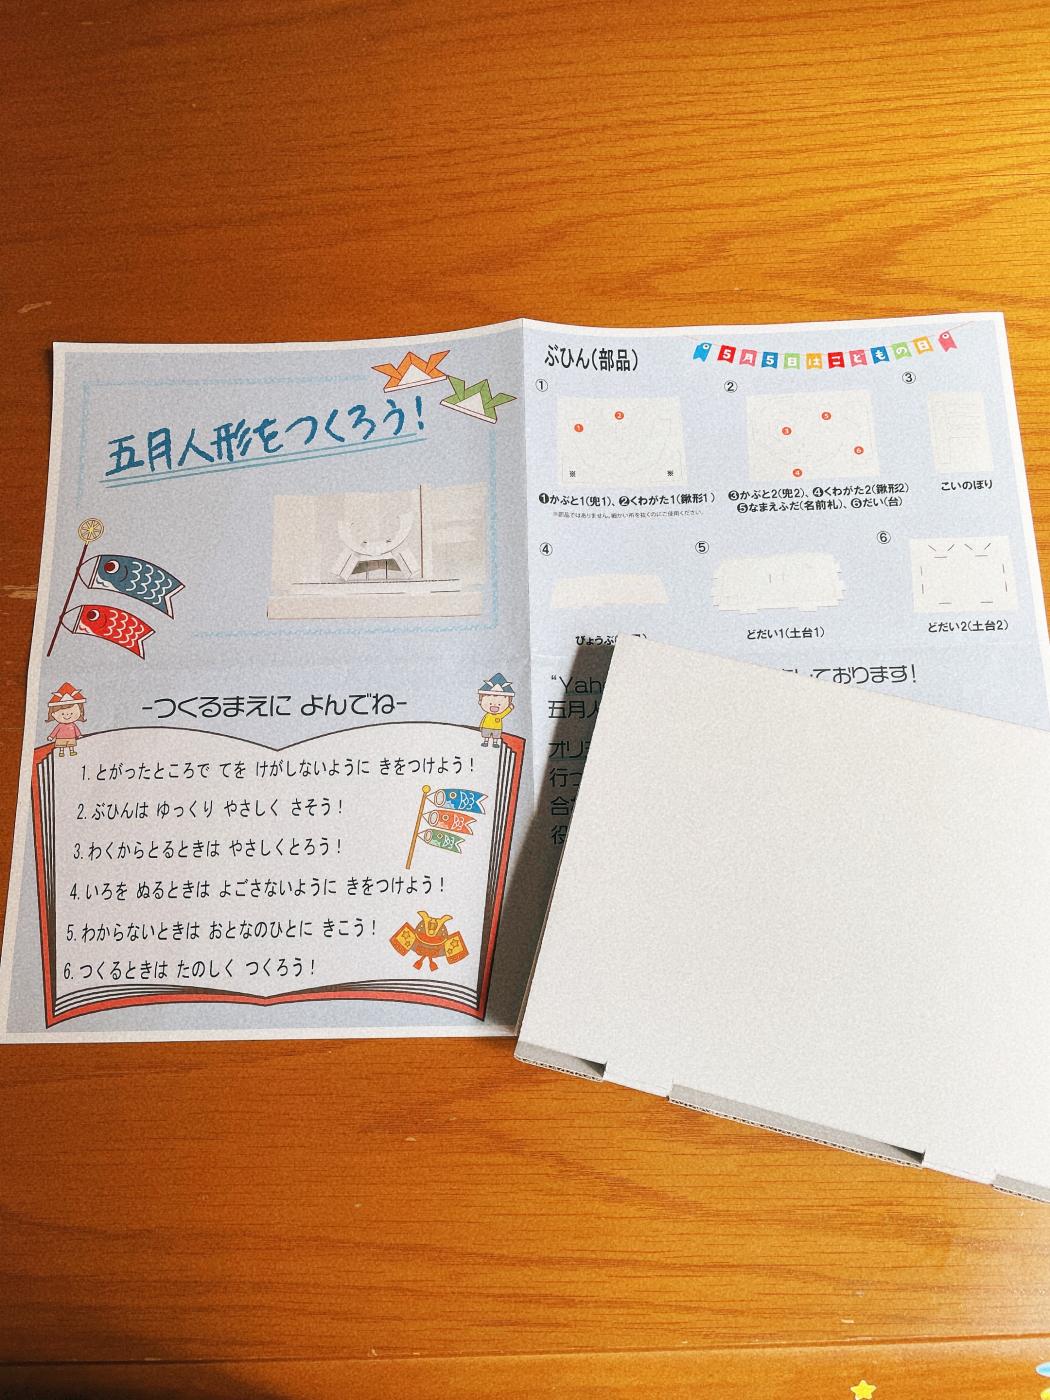 五月人形をつくろう!
-つくるまえに よんでね-
1. とがったところで てを けがしないように きをつけよう!
2. ぶひんは ゆっくり やさしく さそう!
3. わくからとるときは やさしくとろう!
4. いろを ぬるときは よごさないように きをつけよう!
5. わからないときは おとなのひとに きこう!
6. つくるときは たのしく つくろう!
ぶひん(部品)
5月5日はこどもの日
①
❶
❷
※ ※
❶かぶと1(兜1)、❷くわがた1(鍬形1)
※部品ではありません。細かい所を抜くのにご使用ください。
②
❸
❹
❺
❻
❸かぶと2(兜2)、❹くわがた2(鍬形2)
❺なまえふだ(名前札)、❻だい(台)
③
こいのぼり
④
びょうぶ
⑤
どだい1(土台1)
⑥
どだい2(土台2)
“Yah
しております!
五月人
オリ
行っ
合
役